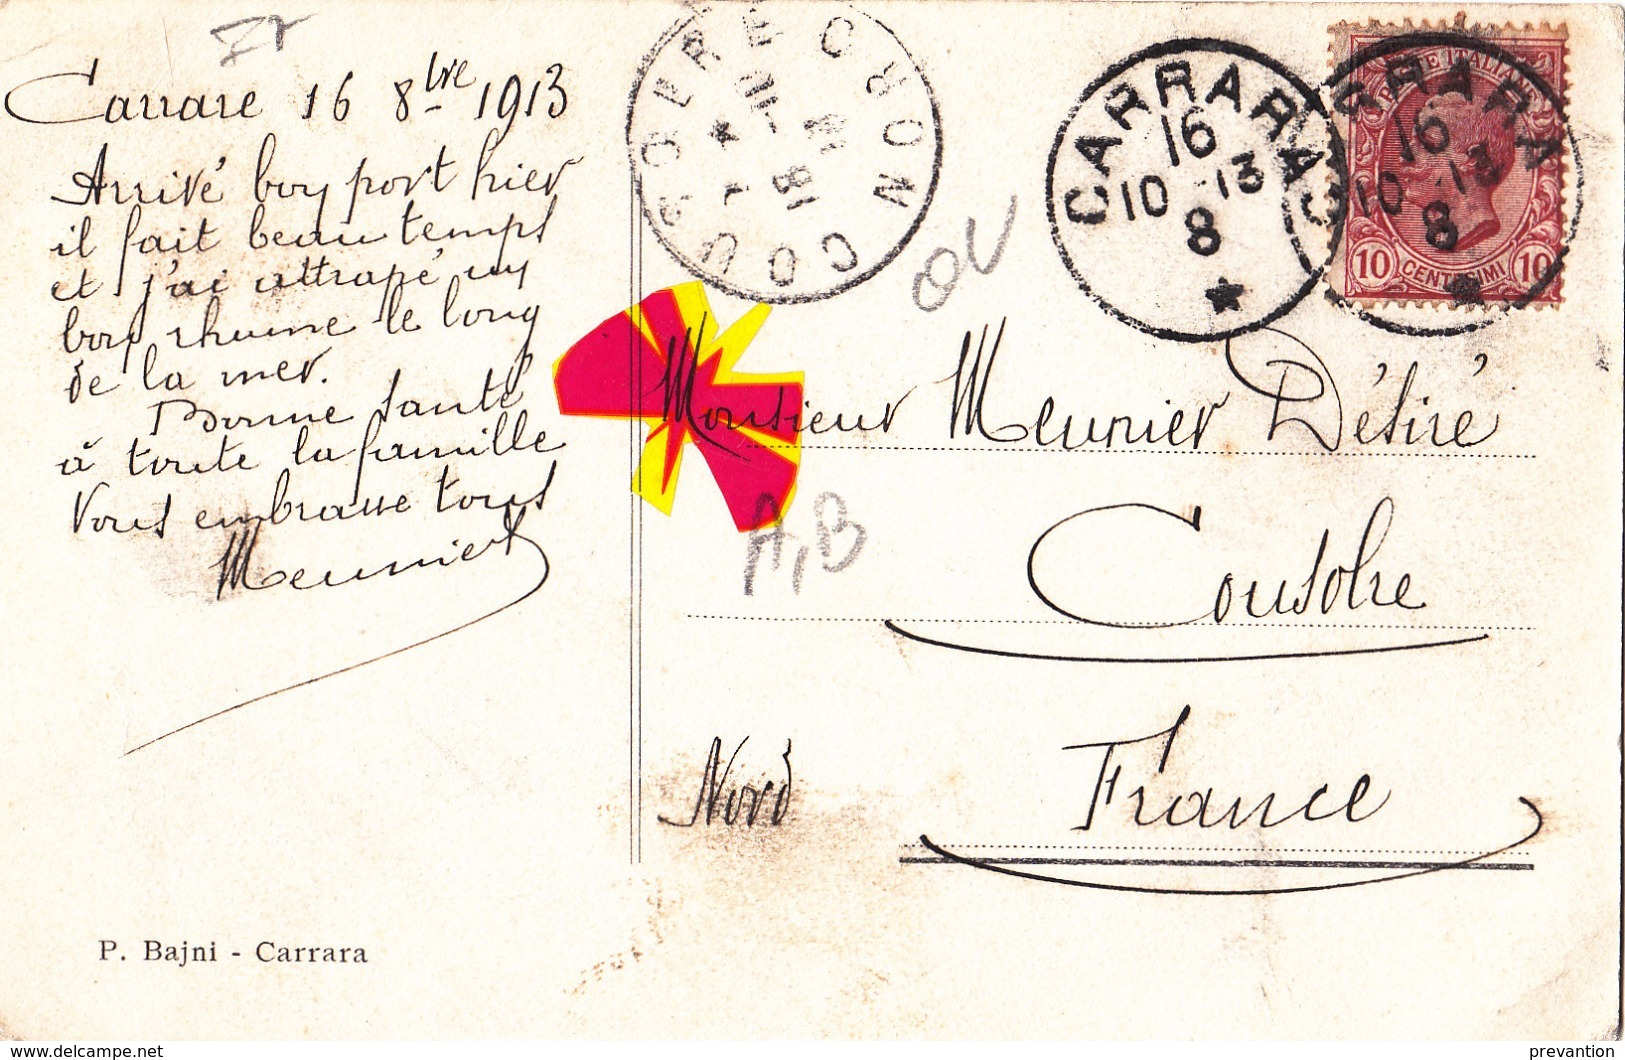 Carrare 16 8bre 1913
Arrivé bon port hier
il fait beau temps
et j'ai attrapé un
bon rhume le long
de la mer.
Bonne santé
à toute la famille
Vous embrasse tous
Meunier
P. Bajni - Carrara
CARRARA
16
10 - 13
8
CARRARA
16
10 - 13
8
POSTE ITALIANE
10 CENTESIMI 10
COUSOLRE NORD
18
A,B
Monsieur Meunier Désiré
Cousolre
Nord France
delcampe.net
prevantion